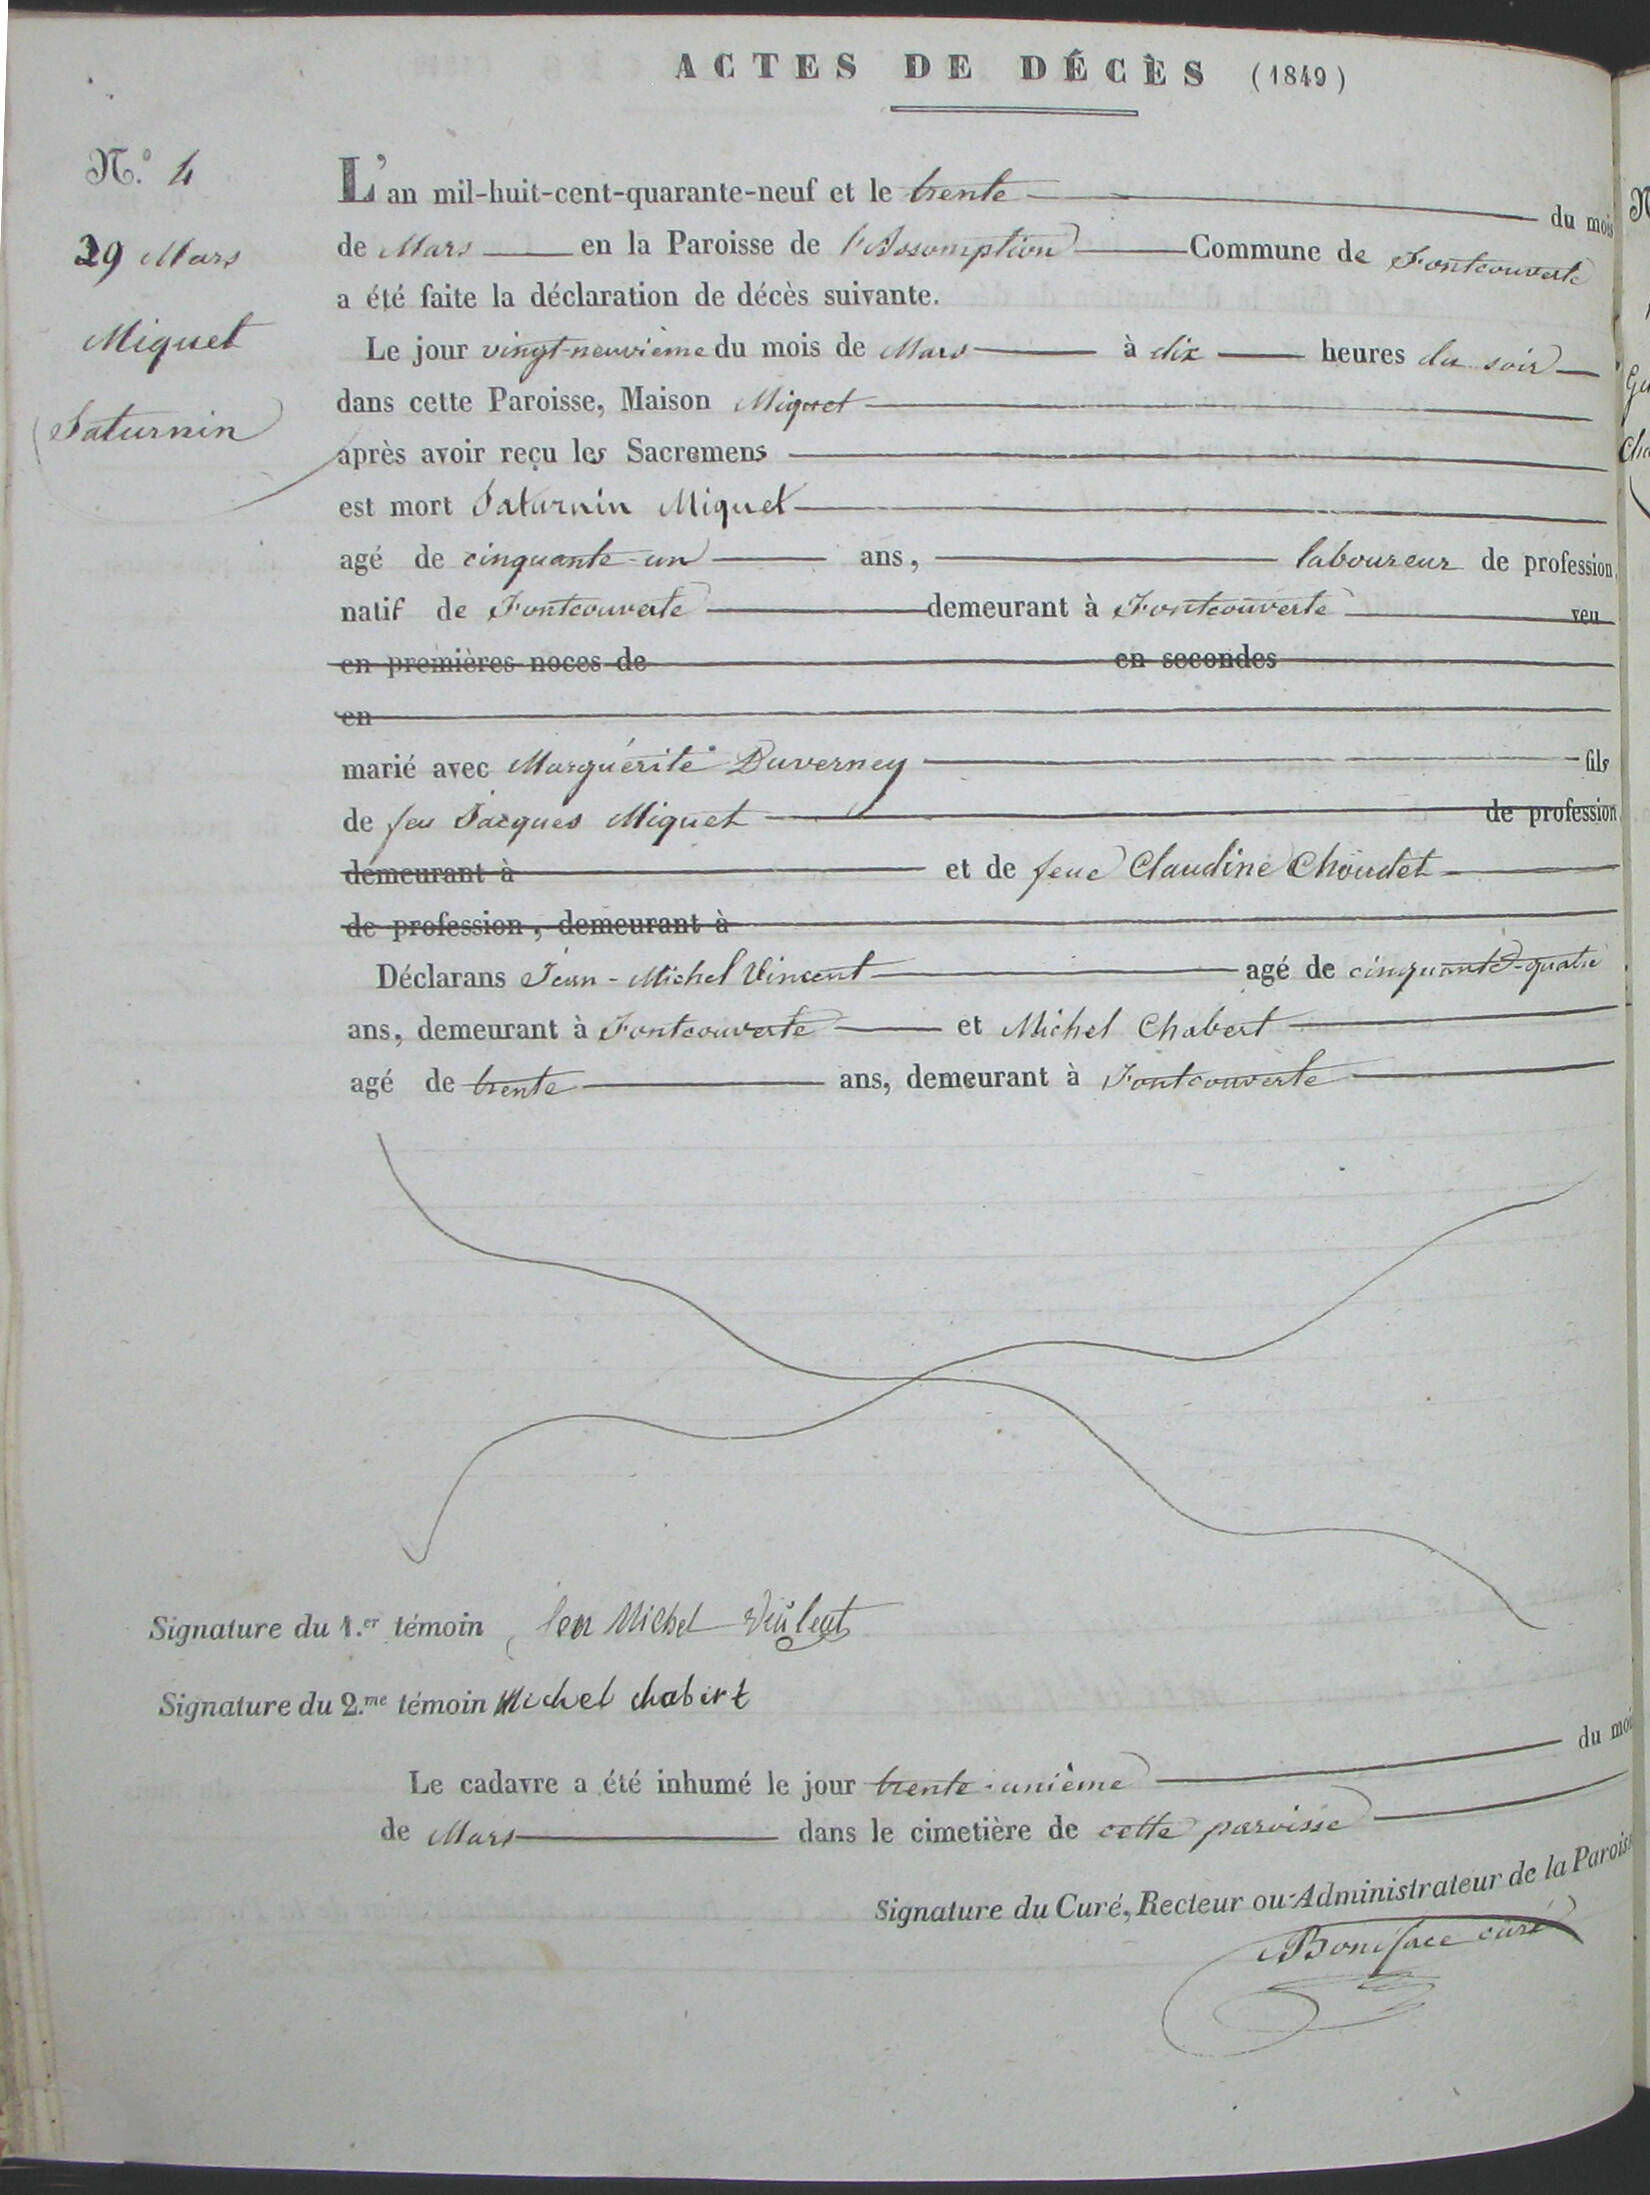 ACTES DE DÉCÈS (1849)
N.° 4
29 Mars
Miquet
Saturnin
L'an mil-huit-cent-quarante-neuf et le trente du mois
de Mars en la Paroisse de l'Assomption Commune de Fontcouverte
a été faite la déclaration de décès suivante.
Le jour vingt-neuvième du mois de Mars à dix heures du soir
dans cette Paroisse, Maison Miquet
après avoir reçu les Sacremens
est mort Saturnin Miquet
agé de cinquante-un ans, laboureur de profession
natif de Fontcouverte demeurant à Fontcouverte veu
en premières noces de en secondes
en
marié avec Marguérite Duverney fils
de feu Jacques Miquet de profession
demeurant à et de feue Claudine Choudet
de profession, demeurant à
Déclarans Jean-Michel Vincent agé de cinquante-quatre
ans, demeurant à Fontcouverte et Michel Chabert
agé de trente ans, demeurant à Fontcouverte
Signature du 1.er témoin Jen Michel
Signature du 2.me témoin Michel chabert
Le cadavre a été inhumé le jour trente-unième du moi
de Mars dans le cimetière de cette paroisse
Signature du Curé, Recteur ou Administrateur de la Parois
Boniface curé